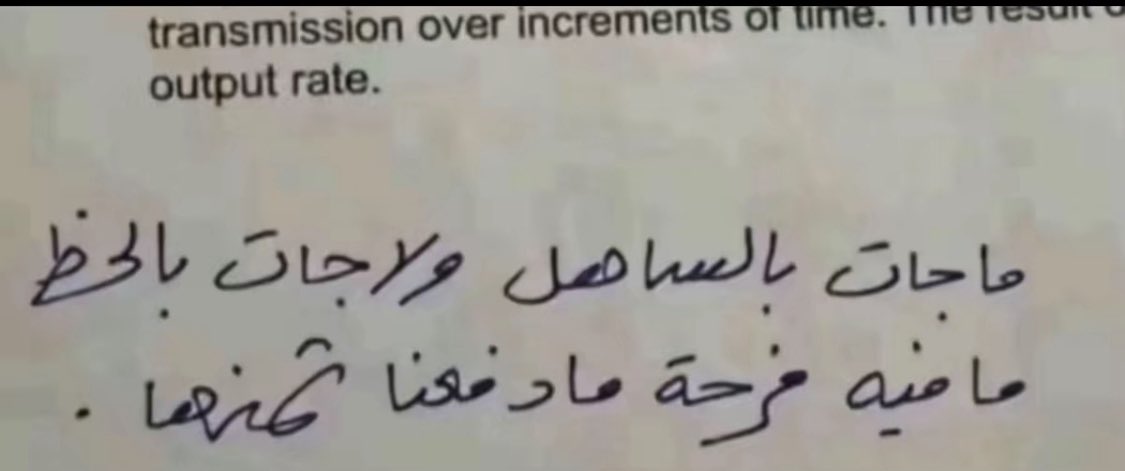 transmission over increments of time. The result
output rate.
ماجات بالساهل ولاجات بالحظ
ما فيه فرحة مادفعنا ثمنها .